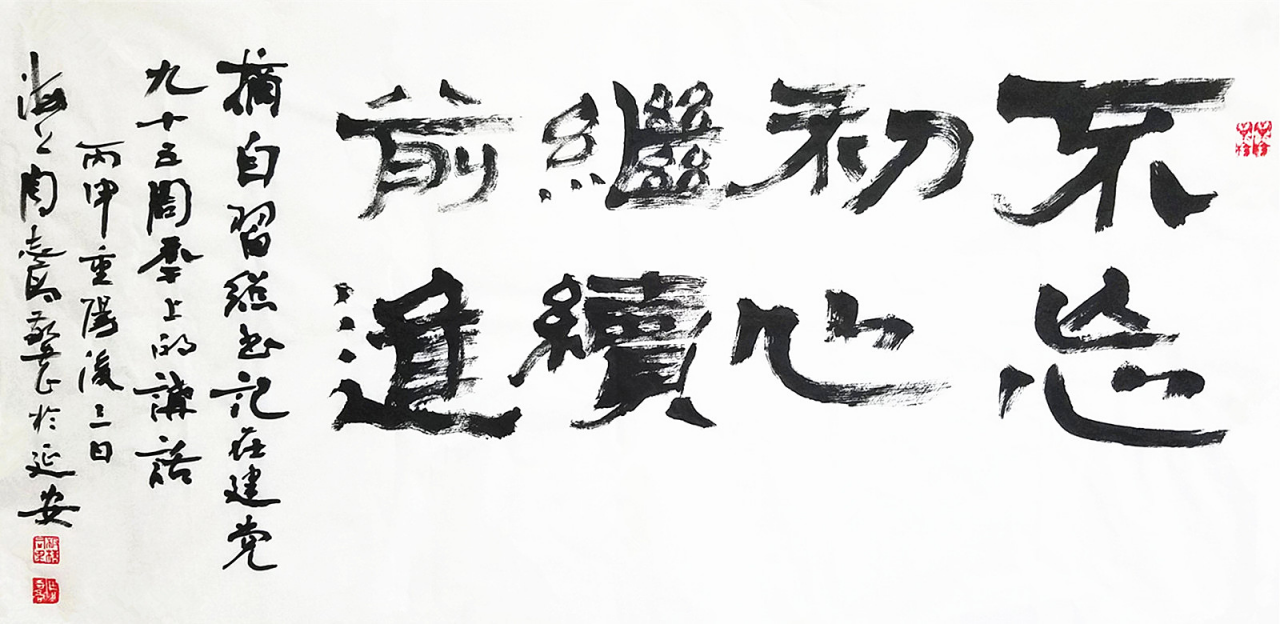 不忘
初心
繼續
前進
摘自習總書記在建党
九十五周年上的講話
丙申重陽後三日
海上周志高敬書於延安